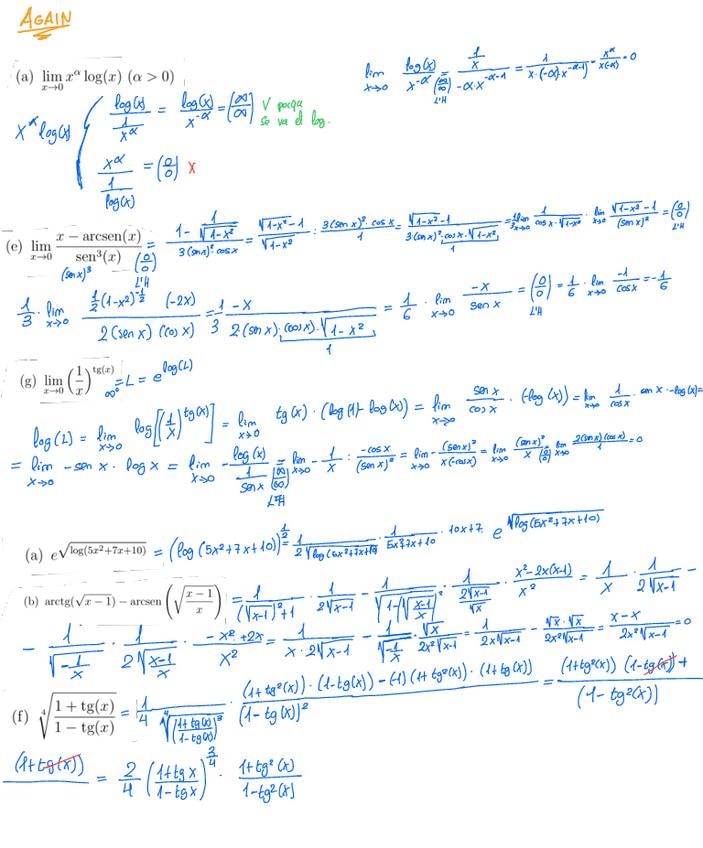 AGAIN
(a) lim_{x→0} x^α log(x) (α > 0)
lim_{x→0} log(x)/x^{-α} = (∞/∞) L'H = (1/x)/(-α·x^{-α-1}) = 1/(x·(-α)·x^{-α-1}) = x^α/(-α) = 0
x^α log(x) { log(x)/(1/x^α) = log(x)/x^{-α} = (∞/∞) V porque se va el log.
x^α/(1/log(x)) = (0/0) X
(e) lim_{x→0} (x − arcsen(x))/sen³(x) = (0/0) L'H = (1 - 1/√(1-x²))/(3(sen x)²·cos x) = (√(1-x²) -1)/√(1-x²) : (3(sen x)²·cos x)/1 = (√(1-x²) -1)/(3(sen x)²·cos x·√(1-x²)) = 1/3 lim_{x→0} 1/(cos x·√(1-x²)) · lim_{x→0} (√(1-x²) -1)/(sen x)² = (0/0) L'H
(sen x)³
1/3 · lim_{x→0} (1/2 (1-x²)^{-1/2} (-2x))/(2(sen x)(cos x)) = 1/3 -x/(2(sen x)(cos x)·√(1-x²)) = 1/6 · lim_{x→0} -x/sen x = (0/0) L'H = 1/6 · lim_{x→0} -1/cos x = -1/6
(g) lim_{x→0} (1/x)^{tg(x)} = L = e^{log(L)}
∞⁰
log(L) = lim_{x→0} log[(1/x)^{tg(x)}] = lim_{x→0} tg(x)·(log(1) - log(x)) = lim_{x→0} sen x/cos x · (-log(x)) = lim_{x→0} 1/cos x · sen x · -log(x) =
= lim_{x→0} -sen x · log x = lim_{x→0} - log(x)/(1/sen x) (∞/∞) L'H = lim_{x→0} - 1/x : -cos x/(sen x)² = lim_{x→0} - (sen x)²/(x(-cos x)) = lim_{x→0} (sen x)²/x (0/0) = lim_{x→0} 2(sen x)(cos x)/1 = 0
(a) e^{√log(5x²+7x+10)} = (log(5x²+7x+10))^{1/2} = 1/(2√log(5x²+7x+10)) · 1/(5x²+7x+10) · 10x+7 · e^{√log(5x²+7x+10)}
(b) arctg(√(x − 1)) − arcsen(√((x − 1)/x)) = 1/((√(x-1))²+1) · 1/(2√(x-1)) - 1/√(1-(√((x-1)/x))²) · 1/(2√(x-1)/√x) · (x²-2x(x-1))/x² = 1/x · 1/(2√(x-1)) -
- 1/√(-1/x) · 1/(2√((x-1)/x)) · (-x²+2x)/x² = 1/(x·2√(x-1)) - 1/√(-1/x) · √x/(2x²√(x-1)) = 1/(2x√(x-1)) - (√x·√x)/(2x²√(x-1)) = (x-x)/(2x²√(x-1)) = 0
(f) ⁴√((1 + tg(x))/(1 − tg(x))) = 1/4 1/⁴√((1+tg(x))/(1-tg(x)))³ · ((1+tg²(x))·(1-tg(x)) - (-1)(1+tg²(x))·(1+tg(x)))/(1-tg(x))² = (1+tg²(x))(1-tg(x)) +/(1-tg²(x))
(1+tg(x)) = 2/4 ((1+tg x)/(1-tg x))^{3/4} · (1+tg²(x))/(1-tg²(x))